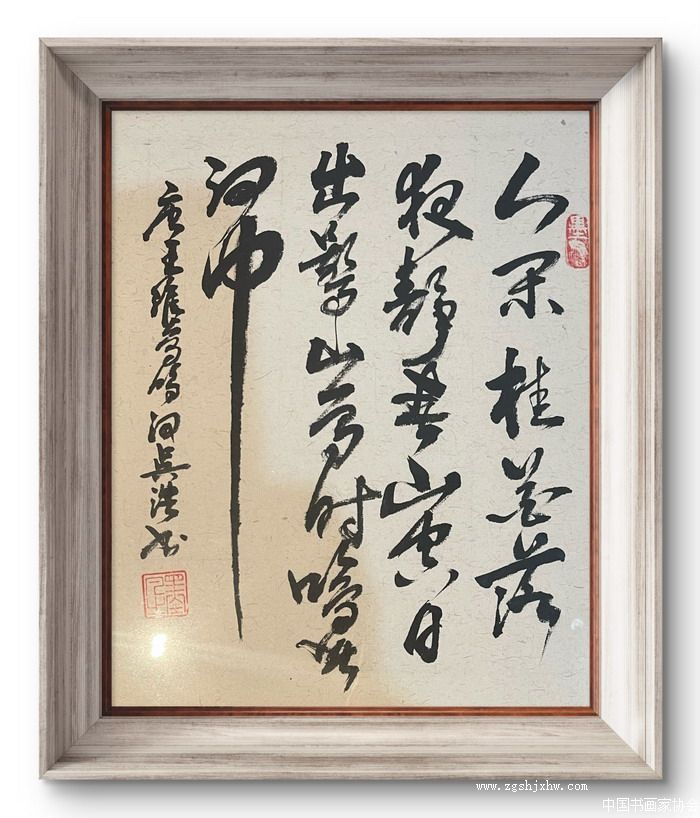 人闲桂花落
夜静春山空月
出惊山鸟时鸣春
涧中
唐王维鸟鸣涧吴浩书
www.zgshjxhw.com
中国书画家协会